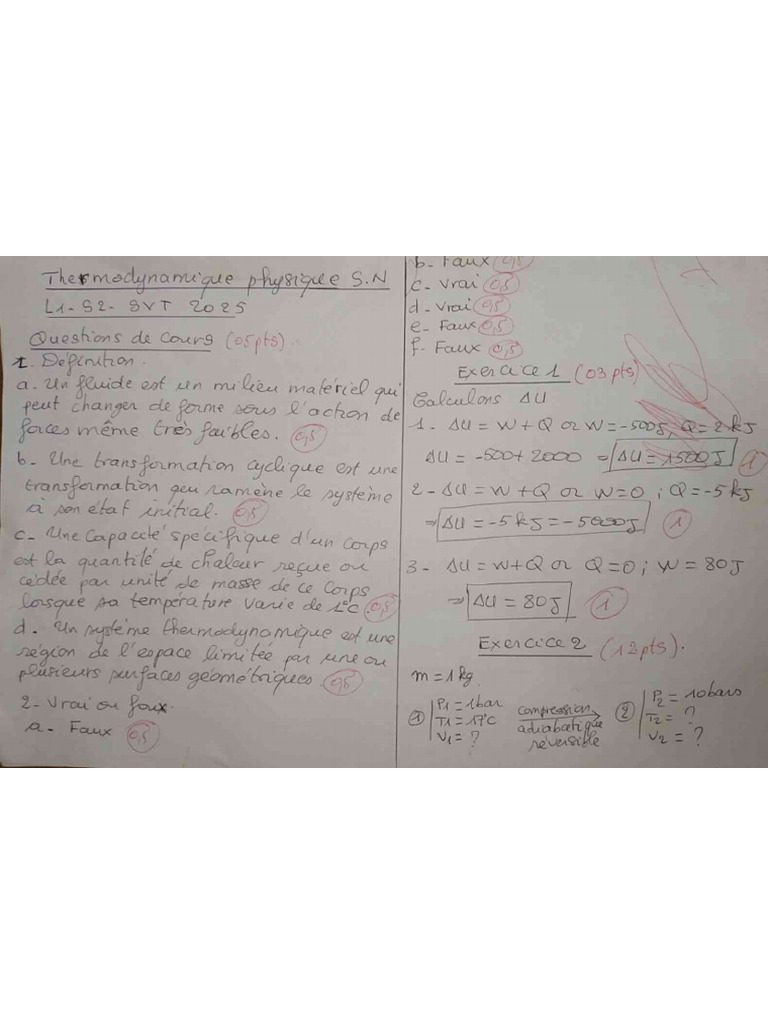 Thermodynamique physique S.N
L1-S2- SVT 2025
Questions de cours (05pts).
1. Définition.
a. Un fluide est un milieu matériel qui
peut changer de forme sous l'action de
forces même très faibles. 0,5
b- Une transformation cyclique est une
transformation qui ramène le système
à son état initial. 0,5
c- Une Capacité spécifique d'un corps
est la quantité de chaleur reçue ou
cédée par unité de masse de ce Corps
lorsque sa température varie de 1°C. 0,5
d. Un système thermodynamique est une
région de l'espace limitée par une ou
plusieurs surfaces géométriques. 0,5
2- Vrai ou faux.
a- Faux 0,5
b- Faux 0,5
c- Vrai 0,5
d- Vrai 0,5
e- Faux 0,5
f- Faux 0,5
Exercice 1 (03 pts)
Calculons ΔU
1- ΔU = W + Q or W = -500J, Q = 2 kJ
ΔU = -500 + 2000 ⇒ ΔU = 1500J 1
2- ΔU = W + Q or W = 0 ; Q = -5 kJ
⇒ ΔU = -5 kJ = -5000J 1
3- ΔU = W + Q or Q = 0 ; W = 80J
⇒ ΔU = 80J 1
Exercice 2 (12pts).
m = 1 kg
① P1 = 1bar compression ② P2 = 10bars
T1 = 17°C adiabatique T2 = ?
V1 = ? réversible V2 = ?